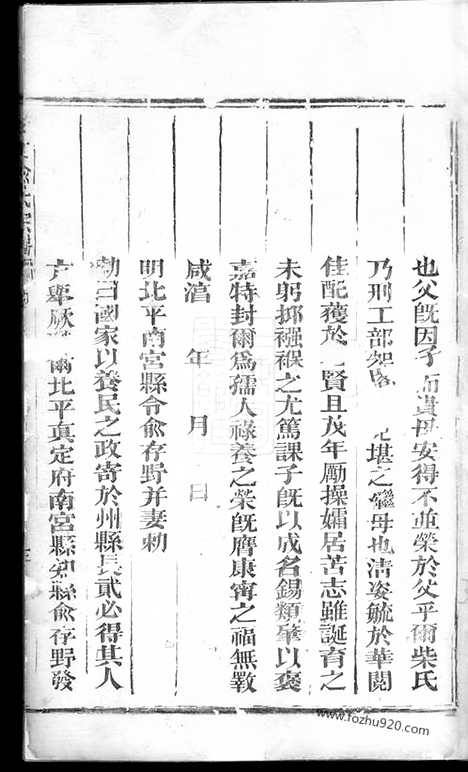 也父既因子而貴母安得不並榮於父乎爾柴氏
乃刑工部 堪之繼母也淸姿毓於華閥
佳配獲於 賢且茂年勵操孀居苦志雖誕育之
未躬抑襁褓之尤篤課子既以成名錫類肇以褒
嘉特封爾爲孺人祿養之榮旣膺康甯之福無斁
咸淳 年 月 日
明北平南宮縣令兪存野并妻勅
勅曰國家以養民之政寄於州縣長貳必得其人
方畢厥 爾北平真定府南宮縣知縣兪存野發
www.fozhu920.com